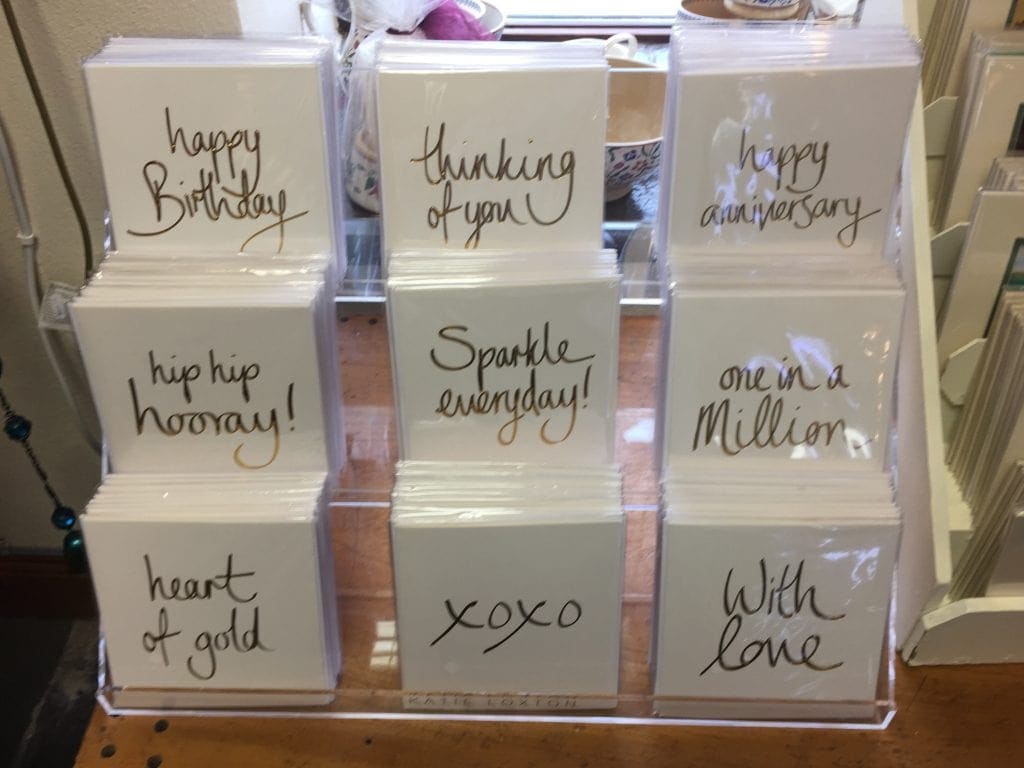 happy
Birthday
thinking
of you
happy
anniversary
hip hip
hooray!
Sparkle
everyday!
one in a
Million
heart
of gold
xoxo
With
love
KATIE LOXTON